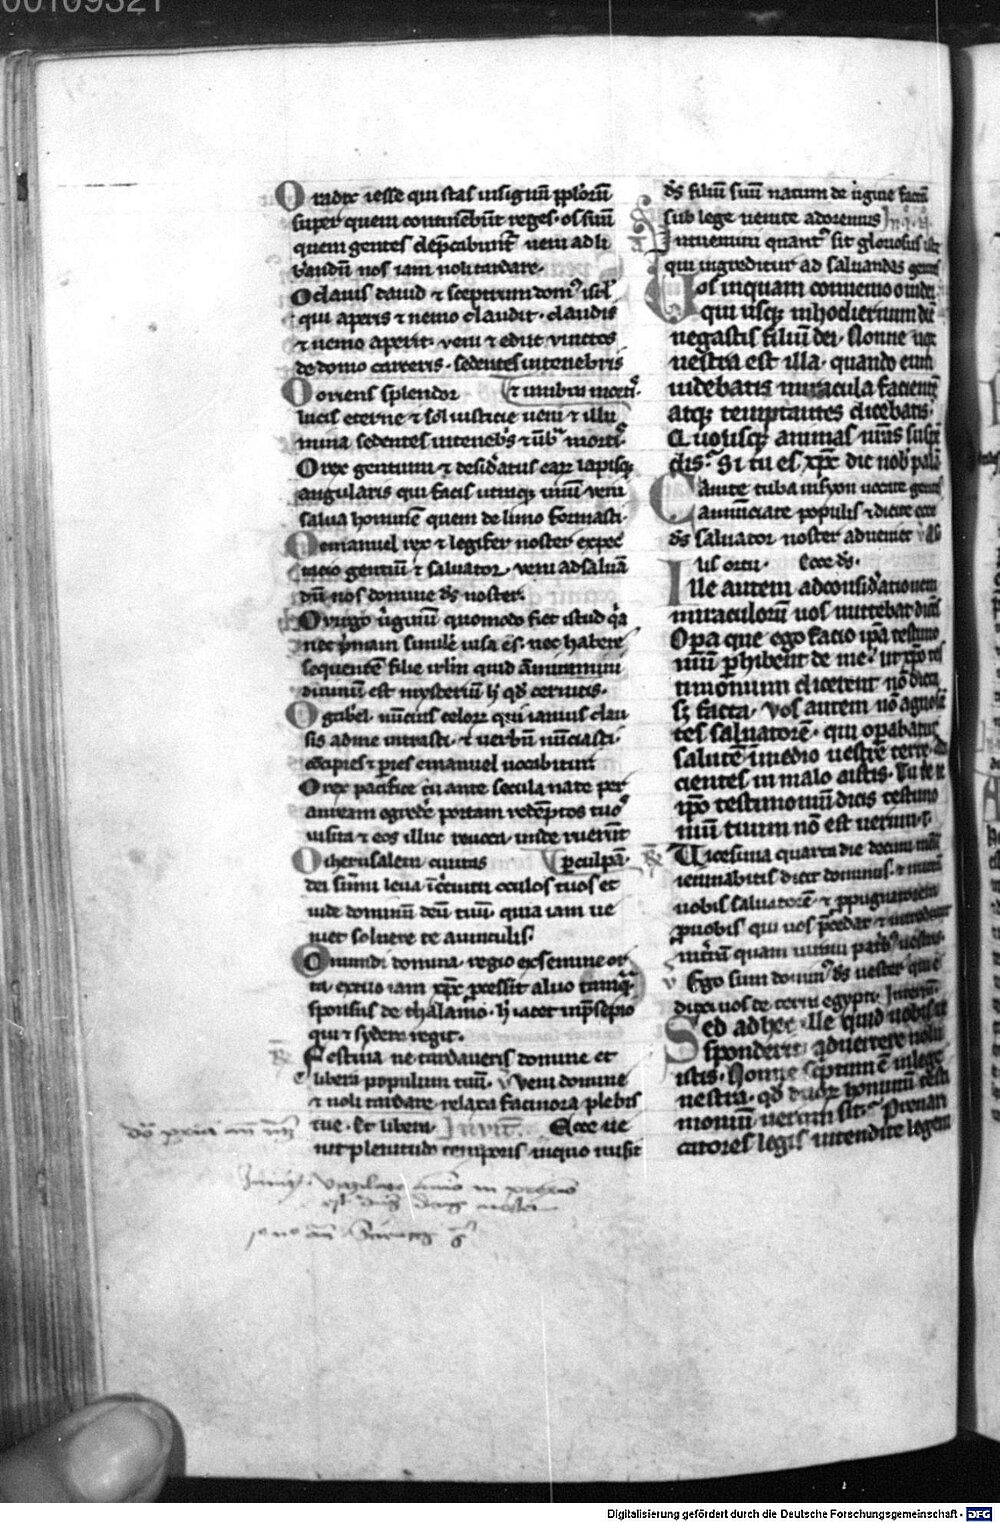 00109321
O radix iesse qui stas insignū pplorū
super quem continebūt reges · os suū
quem gentes dep̄cabunt᷑ veni ad li
b̓andū nos iam noli tardare ·
O clauis dauid ⁊ sceptrum dom᷒ isrl̓
qui aperis ⁊ nemo claudit · claudis
⁊ nemo aperit · veni ⁊ educ vinctos
de domo carceris · sedentes in tenebris
O oriens splendor ⁊ umbra mort̓ ·
lucis eterne ⁊ sol iusticie veni ⁊ illu
mina sedentes in tenebs̓ ⁊ ūb̓ morti᷒
O rex gentium ⁊ desid̓atus earꝝ lapisqꝫ
angularis qui facis utraqꝫ unū veni
salua hominē quem de limo formasti ·
O emanuel rex ⁊ legifer noster expec
tacio gentiū ⁊ saluator · veni ad saluā
dū nos domine ds̄ noster ·
O virgo v̓ginū quomodo fiet istud q̓a
nec p̓mam simile visa es · nec habere
sequentē filie irl̓m quid āmiramini
diuinū est mysteriū h̓ qd̄ cernitis ·
O gab̓el · nūcius celorꝝ qui ianuis clau
sis ad me intrasti · ⁊ verbū nūciasti ·
ōcipies ⁊ p̓ies emanuel uocabitur
O rex pacifice tu ante secula nate per
auream egredere portam redēptos tuo᷒
uisita ⁊ eos illuc reuoca · unde ruerūt
O iherusalem ciuitas p̱ culpā ·
dei sūmi leua ī c̓cuitu oculos tuos et
uide dominū deū tuū · quia iam ve
niet soluere te a uinculis ·
O mundi domina · regio ex semine or
ta · ex tuo iam xp̄c p̄cessit aluo tamqᷓ
sponsus de thalamo · h̓ iacet in p̄sepio
qui ⁊ sydera regit ·
Festina ne tardaueris domine et
libera populum tuū · ℣ Veni domine
⁊ noli tardare relaxa facinora plebis
tue · Et libera · Inuit̄ · Ecce ue
nit plenitudo temporis in quo misit
ds̄ filiū suū natum de v̓gine factū
sub lege venite adoremus
Intuemini quant᷒ sit gloriosus iste
qui ingreditur ad saluandas gentes
Vos inquam conuenio o iudei
qui usqꝫ in hodiernum diē
negastis filiū dei · Nonne uox
uestra est illa · quando eum
uidebatis miracula facientē
atqꝫ temptantes dicebatis ·
Quousqꝫ animas nr̄as suspē
dis · Si tu es xp̄c dic nob̓ palā
Canite tuba in syon vocate gentes
annunciate populis ⁊ dicite ecce
ds̄ saluator noster adueniet
lis ortu · Ecce ds̄ ·
Ille autem ad consid̓ationem
miraculorū uos mittebat dices
Opa que ego facio ip̄a testimo
niū p̱hibent de me · ut xp̄o tes
timonium dicerent nō dicta
sꝫ facta · Vos autem nō agnoscē
tes saluatorē · qui op̱abatur
salutē ī medio uestre terre · ad
cientes in malo aistis · Tu de te
ip̄o testimoniū dicis testimo
niū tuum nō est uerum ·
℟ Vicesima quarta die decimi mēsis
ieiunabitis dicit dominus · ⁊ mittā
uobis saluatorē · ⁊ p̱pugnatorem
pro uobis qui uos p̄cedat ⁊ introducat
in t̓rā quam iuraui patrib̓ uestris ·
℣ Ego sum domin᷒ ds̄ uester qui e
duxi uos de terra egypti ·
Sed ad hec ille quid uobis re
sponderit · aduertere nolu
istis · Nonne scriptum ē in lege
uestra · qd̄ duorꝝ hominū testi
moniū uerum sit · Preuari
catores legis intendite legem